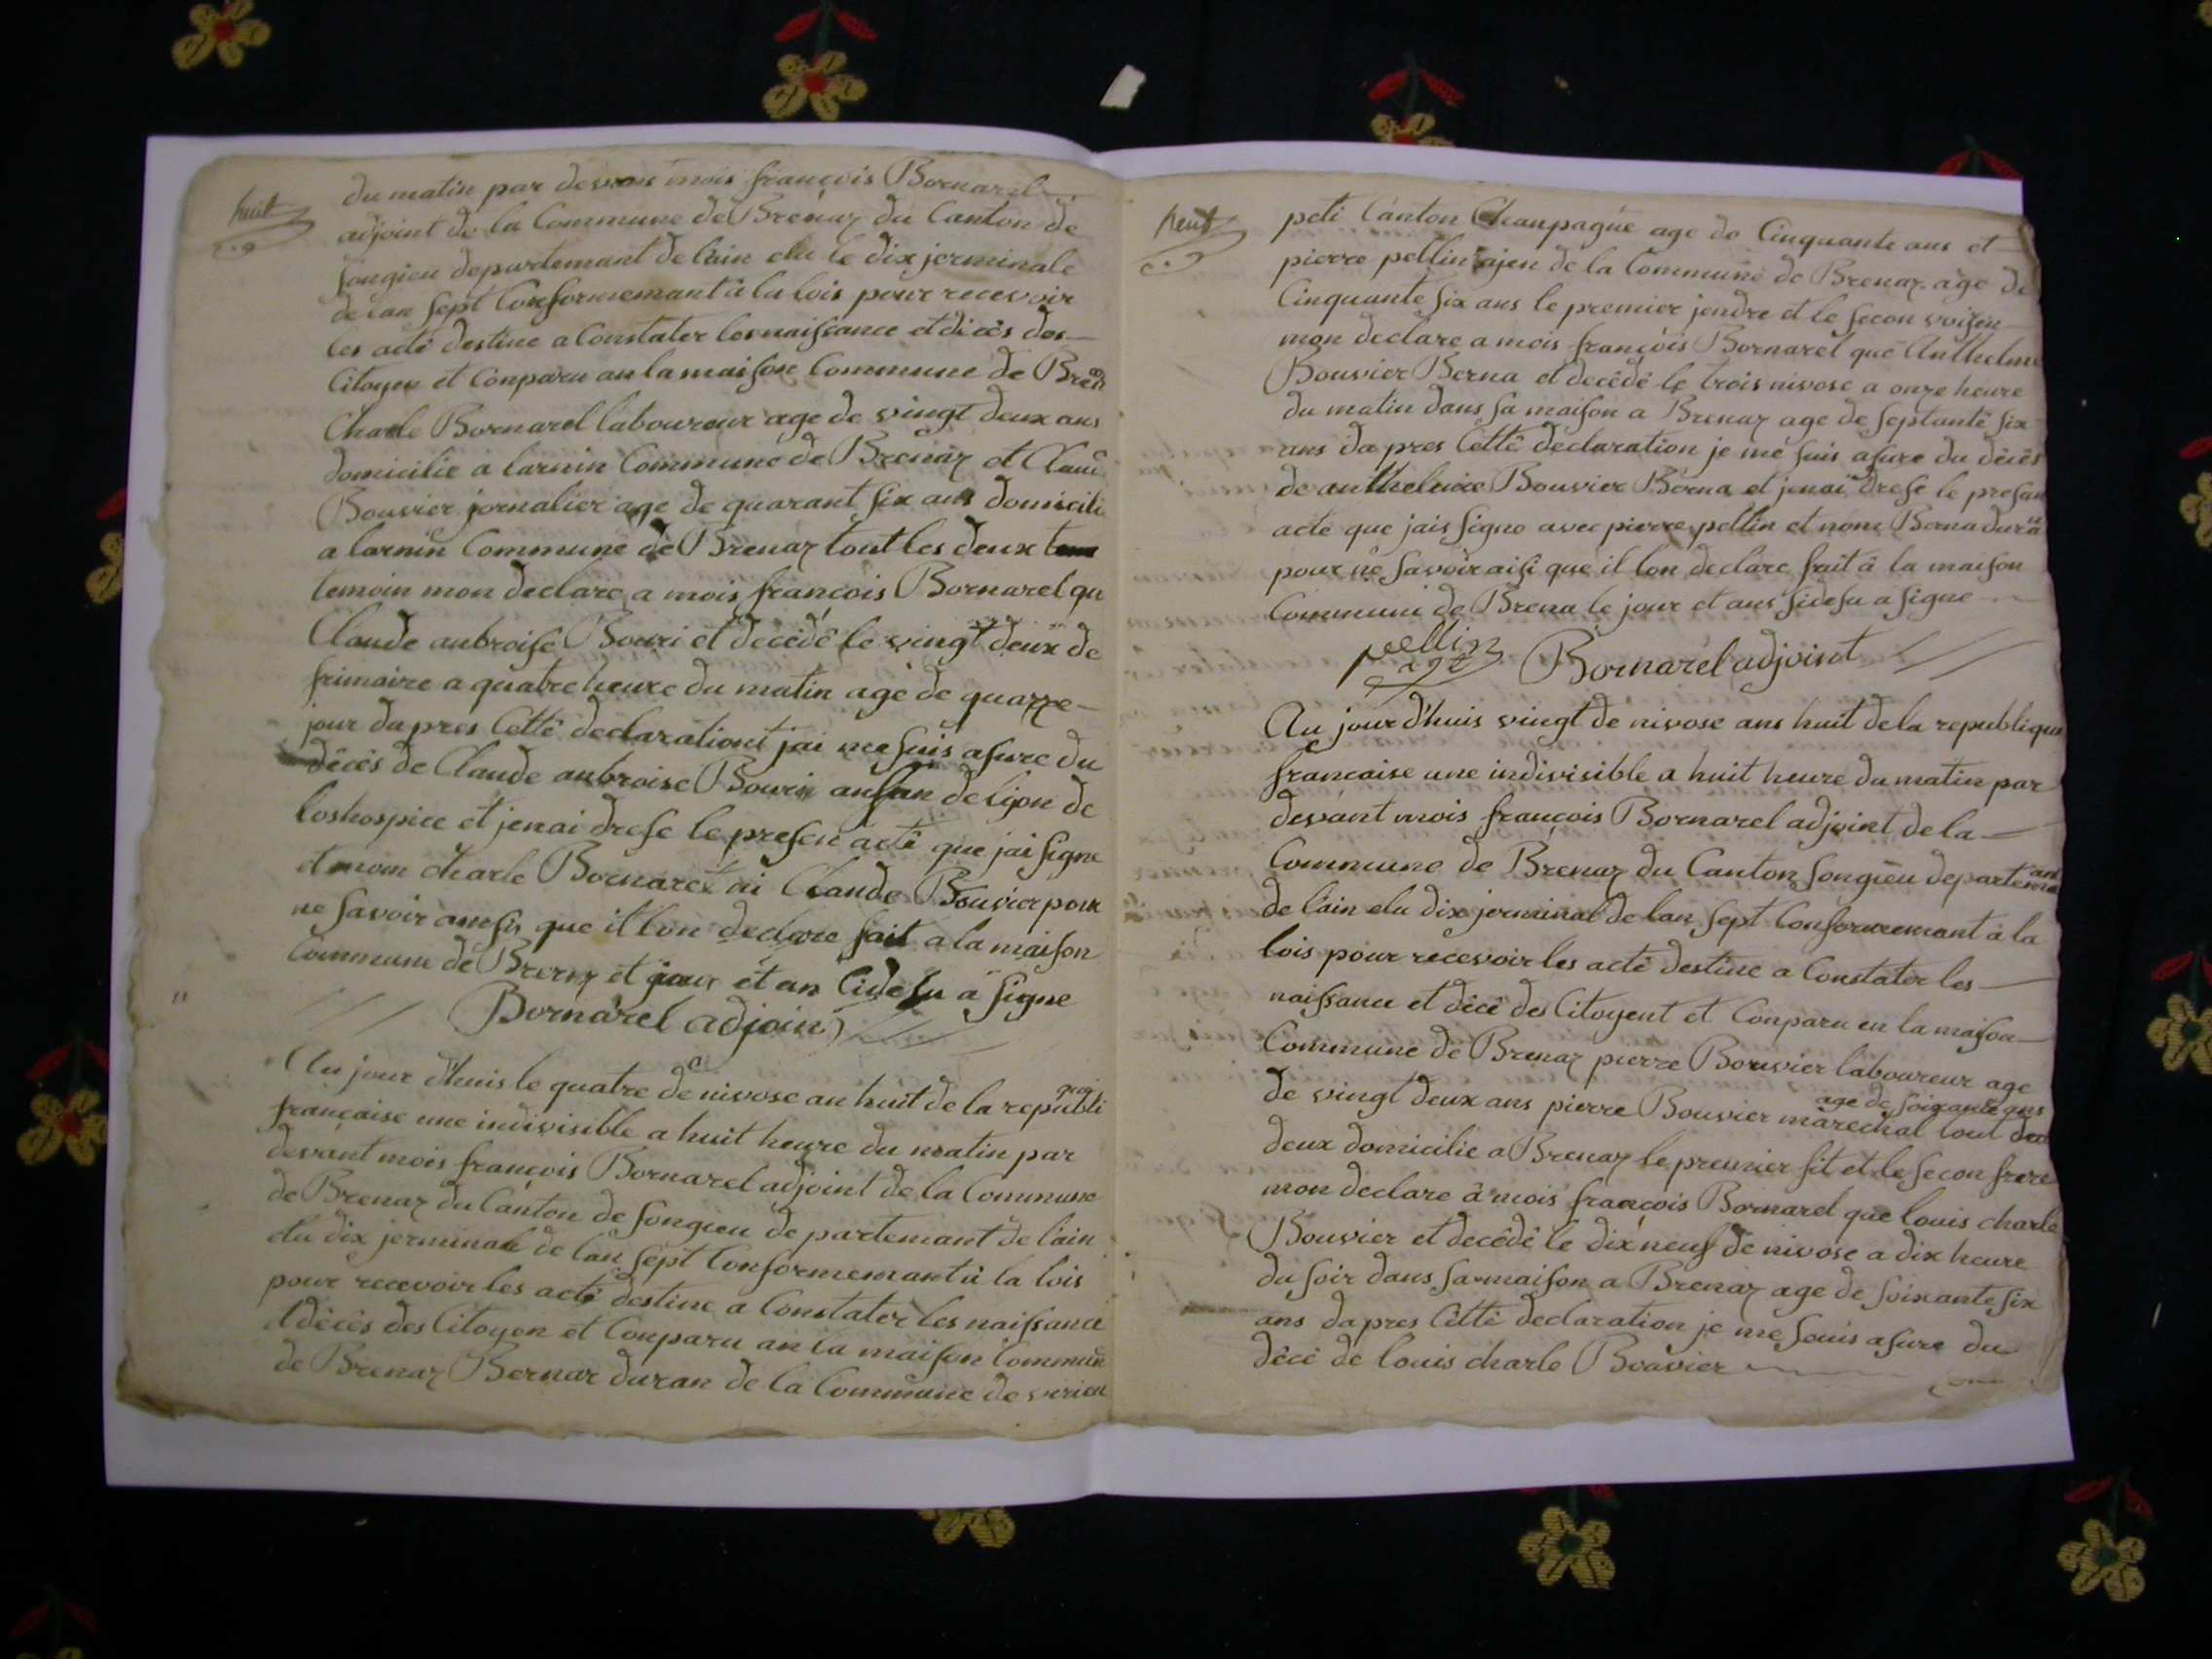 huit
du matin par devans mois françois Bornarel
adjoint de la Commune de Brénaz du Canton de
Songieu departemant de lain elu le dix jerminale
de lan sept Conformemant à la lois pour recevoir
les acte destine a Constater les naissance et dicès des
Citoyen et Conparu an la maison Commune de Bren
Charle Bornarel laboureur age de vingt deux ans
domicilie a larnin Commune de Brénaz et Claude
Bouvier jornalier age de quarant six ans domicili
a larnin Commune de Brenaz tout les deux
temoin mon declare a mois francois Bornarel qu
Claude anbroise Bouri et decedé le vingt deux de
frimaire a quatre heure du matin agé de quazze
jour dapres Cette declarationt jai me suis asure du
décès de Claude anbroise Bouri anfan de lion de
loshospice et jenai drese le presen acte que jai signe
et mom charle Bornarel ni Claude Bouvier pour
ne savoir ansis que il lon declare fait a la maison
Commune de Brenaz et jour et an Cidesu a signe
Bornarel adjoin
Au jour dhuis le quatre de nivose an huit de la republi
que
française une indivisible a huit heure du matin par
devant mois françois Bornarel adjoint de la Commune
de Brenaz du Canton de Songieu de partemant de lain
elu dix jerminal de lan sept Conformemant à la lois
pour recevoir les acte destine a Constater les naissance
et décès des Citoyen et Conparu an la maison Commune
de Brenaz Bernar duran de la Commune de virieu
neuf
peti Canton Chanpagne age de Cinquante ans et
pierre pellin ajen de la Commune de Brenaz age de
Cinquante six ans le premier jendre et le secon voisen
mon declare a mois françois Bornarel que Anthelme
Bouvier Berna et decédé le trois nivose a onze heure
du matin dans sa maison a Brenaz age de septante six
ans da pres Cette declaration je me suis asure du décès
de anthelme Bouvier Berna et jenai drese le presan
acte que jais signe avec pierre pellin et nom Berna duran
pour ne savoir aisi que il lon declare fait à la maison
Commune de Brena le jour et ans sidesu a signe
pellin
agt
Bornarel adjoint
Au jour d'huis vingt de nivose ans huit de la republique
francaise une indivisible a huit heure du matin par
devant mois françois Bornarel adjoint de la
Commune de Brenaz du Canton Songieu departemant
de lain elu dix jerminal de lan sept Conformemant a la
lois pour recevoir les acte destine a Constater les
naissance et décé des Citoyent et Conparu en la maison
Commune de Brenaz pierre Bouvier laboureur age
de vingt deux ans pierre Bouvier marechal tout
age de soixante ans
deux domicilie a Brenaz le premier fit et le secon frere
mon declare à mois françois Bornarel que louis charle
Bouvier et decédé le dix neuf de nivose a dix heure
du soir dans sa maison a Brenaz age de soixante six
ans dapres Cette declaration je me souis asure du
décé de louis charle Bouvier